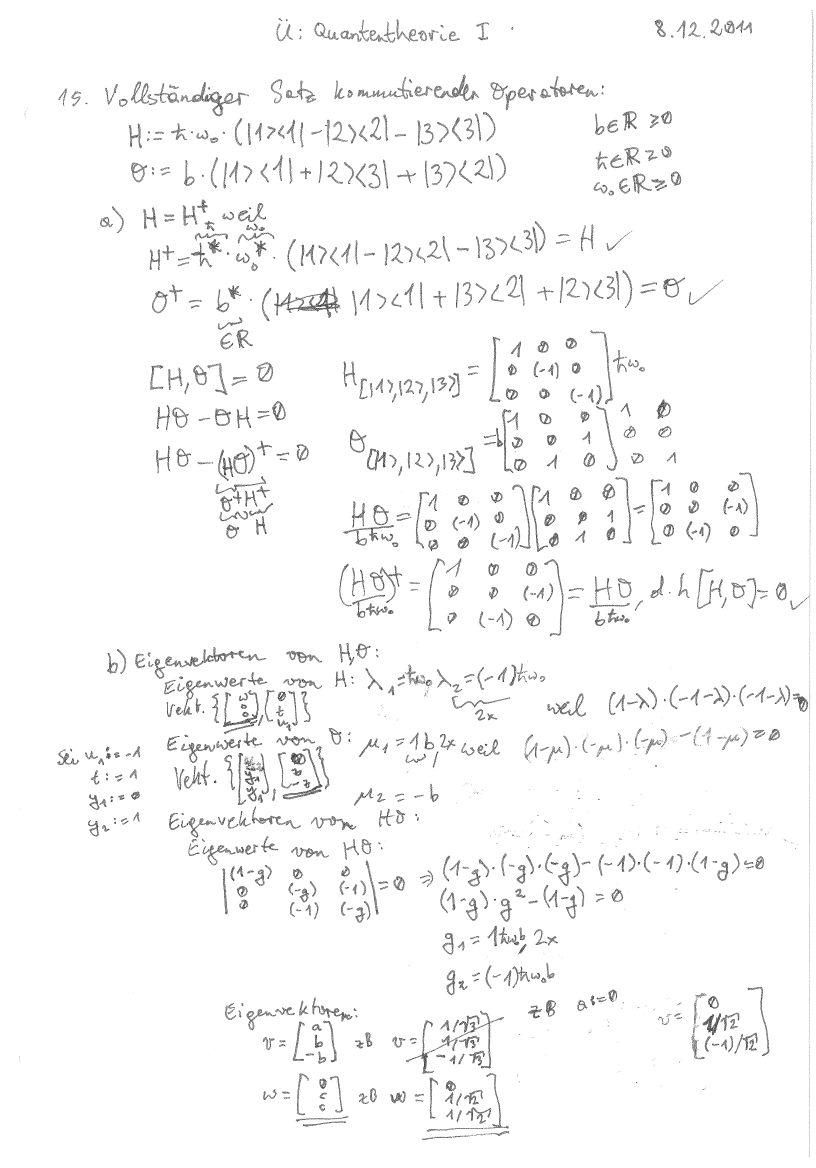 Ü: Quantentheorie I 8.12.2011
15. Vollständiger Satz kommutierender Operatoren:
H := ħ·ω₀·(|1><1| - |2><2| - |3><3|) b∈ℝ ≥0
θ := b·(|1><1| + |2><3| + |3><2|) ħ∈ℝ≥0
ω₀∈ℝ≥0
a) H = H⁺ weil
ħ ω₀
H⁺ = ħ*·ω₀*·(|1><1| - |2><2| - |3><3|) = H ✓
θ⁺ = b*·(|1><1| + |3><2| + |2><3|) = θ ✓
∈ℝ
[H,θ] = 0 H[|1>,|2>,|3>] = [1 0 0; 0 (-1) 0; 0 0 (-1)] ħω₀
Hθ - θH = 0
Hθ - (Hθ)⁺ = 0 θ[|1>,|2>,|3>] = b[1 0 0; 0 0 1; 0 1 0] 1 0 0 0 0 1
θ⁺H⁺
θ H
Hθ/bħω₀ = [1 0 0; 0 (-1) 0; 0 0 (-1)] [1 0 0; 0 0 1; 0 1 0] = [1 0 0; 0 0 (-1); 0 (-1) 0]
(Hθ)⁺/bħω₀ = [1 0 0; 0 0 (-1); 0 (-1) 0] = Hθ/bħω₀, d.h [H,θ] = 0 ✓
b) Eigenvektoren von H,θ:
Eigenwerte von H: λ₁ = ħω₀ λ₂ = (-1)ħω₀
2x weil (1-λ)·(-1-λ)·(-1-λ) = 0
Vekt. {[w 0 0], [0 t u₁]}
Sei u₁ := -1 Eigenwerte von θ: μ₁ = 1b, 2x weil (1-μ)·(-μ)·(-μ) - (1-μ) = 0
t := 1 Vekt.
y₁ := 0 μ₂ = -b
y₂ := 1 Eigenvektoren von Hθ:
Eigenwerte von Hθ:
|(1-g) 0 0; 0 (-g) (-1); 0 (-1) (-g)| = 0 ⇒ (1-g)·(-g)·(-g) - (-1)·(-1)·(1-g) = 0
(1-g)·g² - (1-g) = 0
g₁ = 1ħω₀b, 2x
g₂ = (-1)ħω₀b
Eigenvektoren: zB a := 0
v = [a b -b] zB v = [1/√3 1/√3 -1/√3] v = [0 1/√2 (-1)/√2]
w = [0 c c] zB w = [0 1/√2 1/√2]